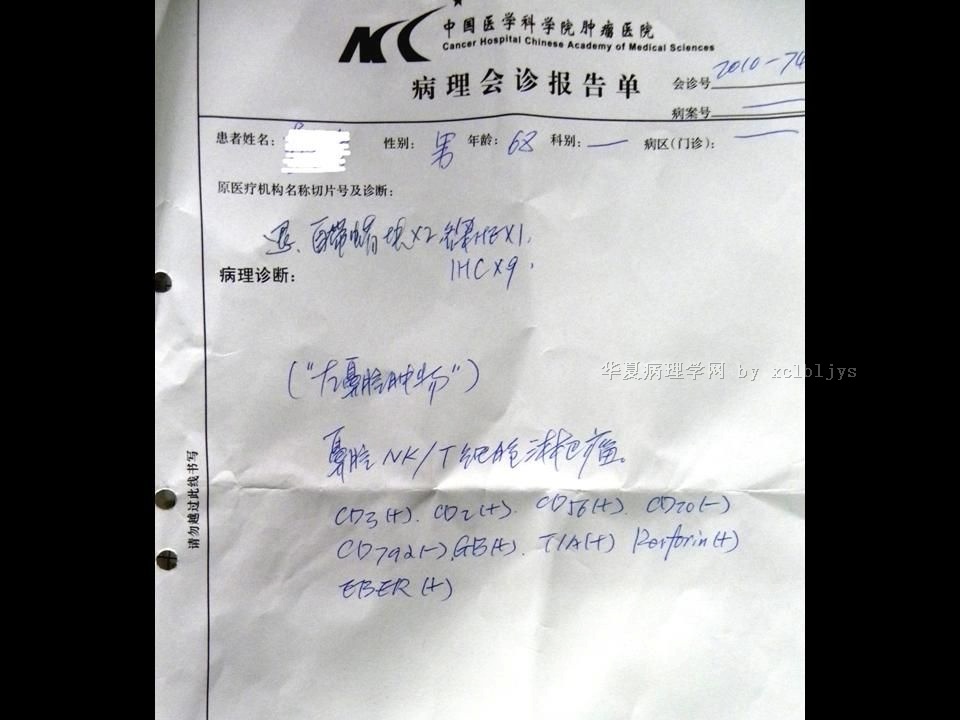 中国医学科学院肿瘤医院
Cancer Hospital Chinese Academy of Medical Sciences
病理会诊报告单
会诊号 2010-74
病案号
患者姓名: 性别: 男 年龄: 68 科别: — 病区(门诊): —
原医疗机构名称切片号及诊断:
自带蜡块X2 HEX1,
IHCX9,
病理诊断:
("左鼻腔肿物")
华夏病理学网 by xclbljys
鼻腔NK/T细胞淋巴瘤。
CD3(+). CD2(+). CD56(+). CD20(-)
CD79a(-) GB(+). TIA(+) Perforin(+)
EBER(+)
请勿越过此线书写